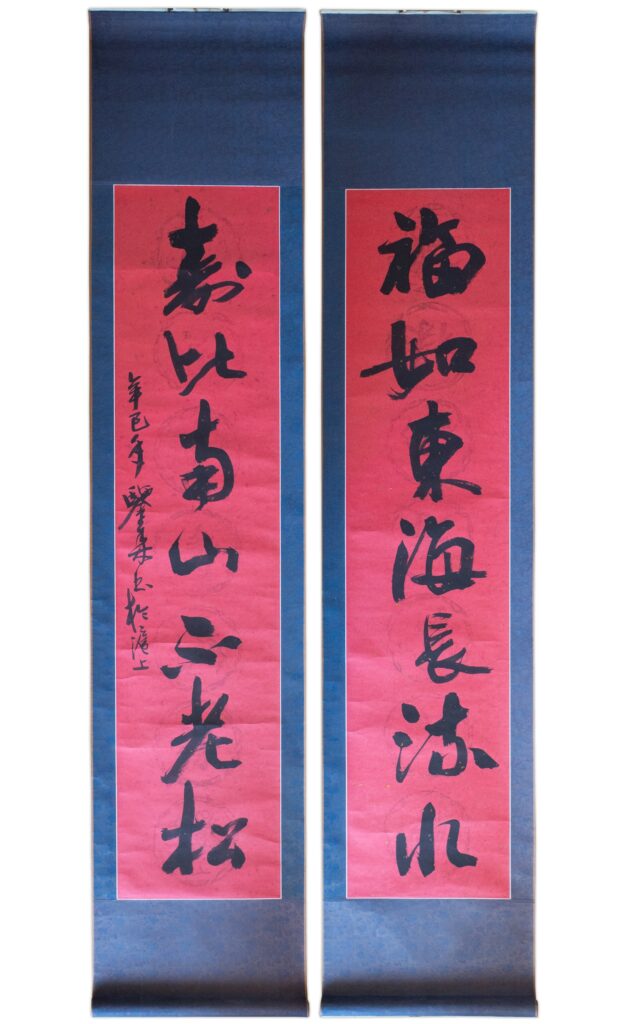 福如東海長流水
壽比南山不老松
辛巳年 書於滬上